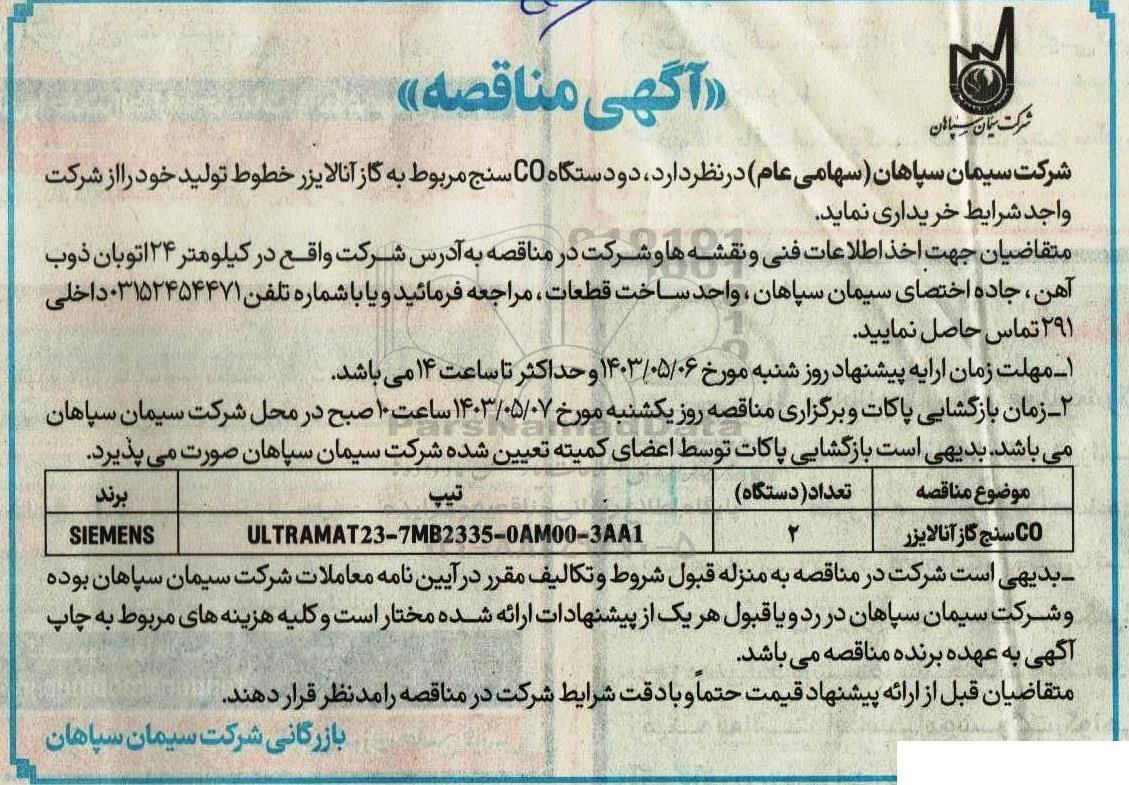 شرکت سیمان سپاهان
«آگهی مناقصه»
شرکت سیمان سپاهان (سهامی عام) در نظر دارد، دو دستگاه CO سنج مربوط به گاز آنالایزر خطوط تولید خود را از شرکت
واجد شرایط خریداری نماید.
متقاضیان جهت اخذ اطلاعات فنی و نقشه ها و شرکت در مناقصه به آدرس شرکت واقع در کیلومتر ۲۴ اتوبان ذوب
آهن، جاده اختصای سیمان سپاهان، واحد ساخت قطعات، مراجعه فرمائید و یا با شماره تلفن ۰۳۱۵۲۴۵۴۴۷۱ داخلی
۲۹۱ تماس حاصل نمایید.
۱ـ مهلت زمان ارایه پیشنهاد روز شنبه مورخ ۱۴۰۳/۰۵/۰۶ و حداکثر تا ساعت ۱۴ می باشد.
۲ـ زمان بازگشایی پاکات و برگزاری مناقصه روز یکشنبه مورخ ۱۴۰۳/۰۵/۰۷ ساعت ۱۰ صبح در محل شرکت سیمان سپاهان
می باشد. بدیهی است بازگشایی پاکات توسط اعضای کمیته تعیین شده شرکت سیمان سپاهان صورت می پذیرد.
موضوع مناقصه تعداد (دستگاه) تیپ برند
CO سنج گاز آنالایزر ۲ ULTRAMAT23-7MB2335-0AM00-3AA1 SIEMENS
ـ بدیهی است شرکت در مناقصه به منزله قبول شروط و تکالیف مقرر در آیین نامه معاملات شرکت سیمان سپاهان بوده
و شرکت سیمان سپاهان در رد و یا قبول هر یک از پیشنهادات ارائه شده مختار است و کلیه هزینه های مربوط به چاپ
آگهی به عهده برنده مناقصه می باشد.
متقاضیان قبل از ارائه پیشنهاد قیمت حتماً و با دقت شرایط شرکت در مناقصه را مدنظر قرار دهند.
بازرگانی شرکت سیمان سپاهان
ParsNamadData